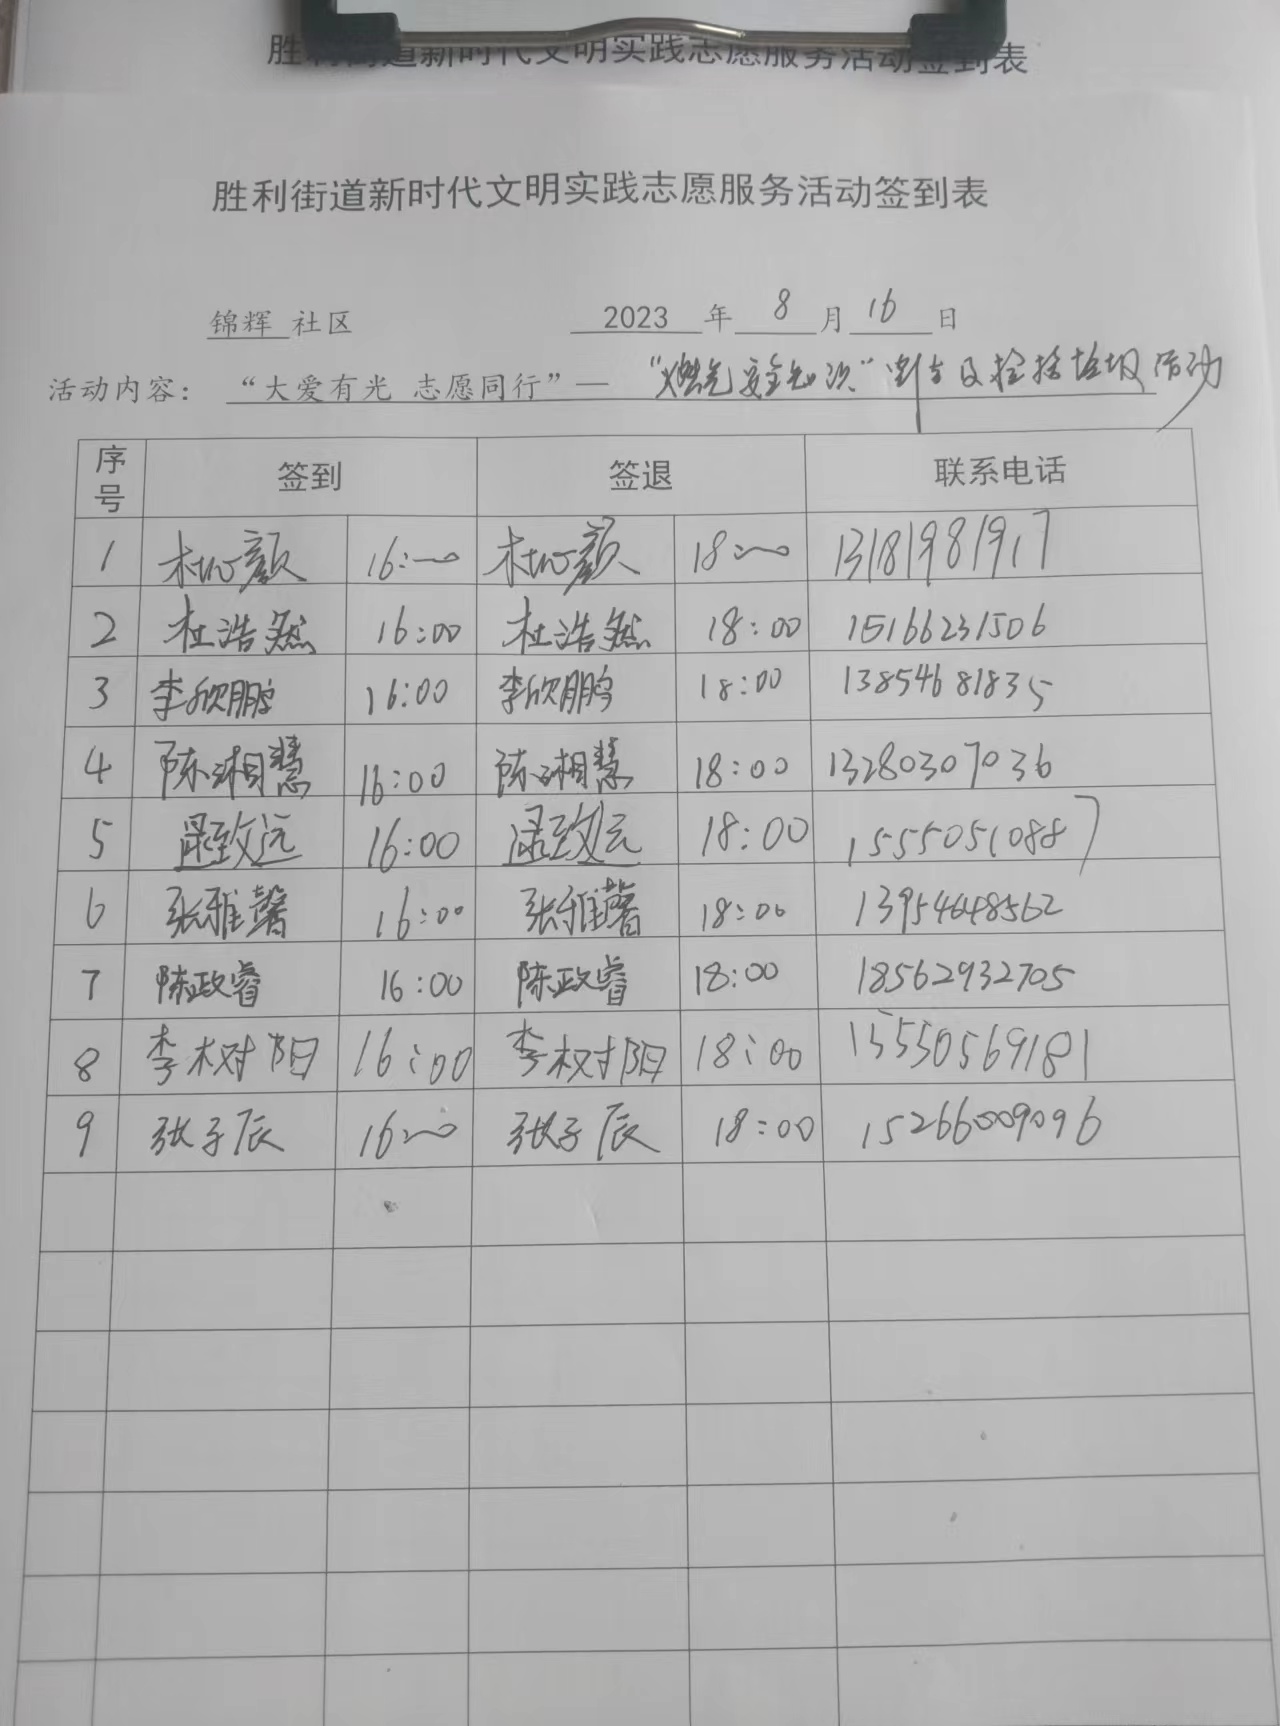 胜利街道新时代文明实践志愿服务活动签到表
胜利街道新时代文明实践志愿服务活动签到表
锦辉 社区 2023 年 8 月 16 日
活动内容: “大爱有光 志愿同行”— “燃气安全知识” 及捡拾垃圾活动
序号 签到 签退 联系电话
1 16:00 18:00 13181981917
2 杜浩然 16:00 杜浩然 18:00 15166231506
3 李欣鹏 16:00 李欣鹏 18:00 13854681835
4 陈湘慧 16:00 陈湘慧 18:00 13280307036
5 致远 16:00 致远 18:00 15550510887
6 张雅馨 16:00 张雅馨 18:00 13954648562
7 陈政睿 16:00 陈政睿 18:00 18562932705
8 李树阳 16:00 李树阳 18:00 15550569181
9 张子辰 16:00 张子辰 18:00 15266009096